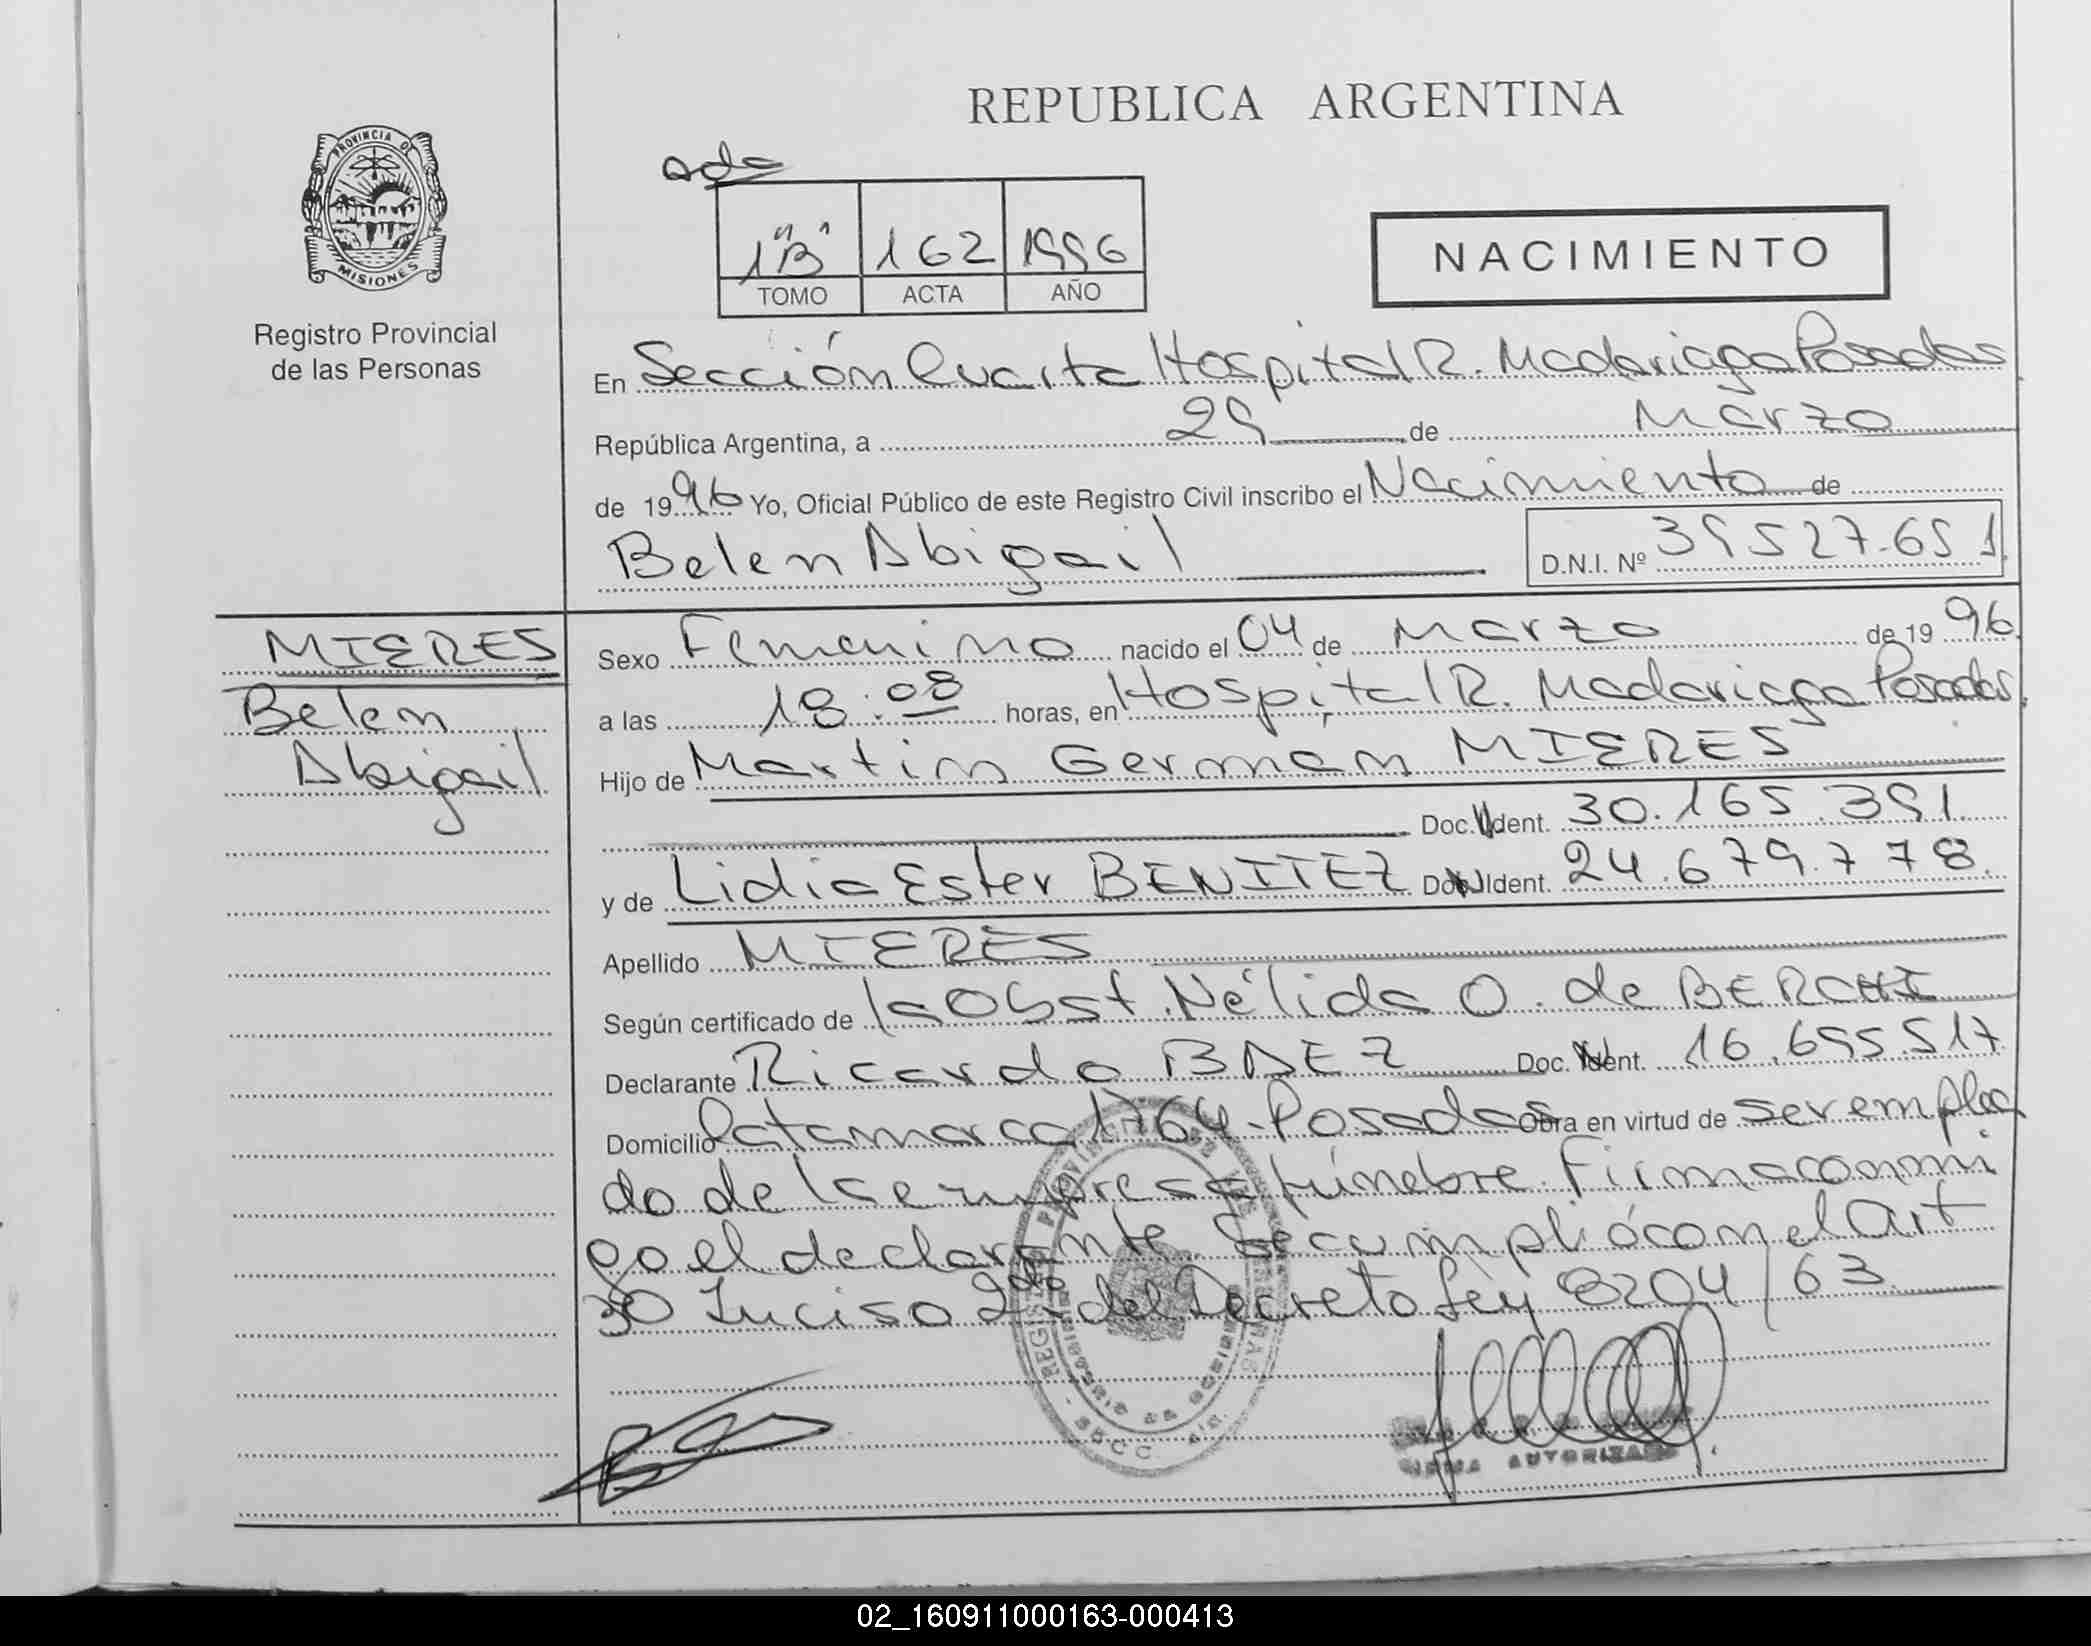 REPUBLICA ARGENTINA
PROVINCIA D
MISIONES
Registro Provincial
de las Personas
1 "B" 162 1996
TOMO ACTA AÑO
NACIMIENTO
En Sección Cuarta Hospital R. Madariaga Posadas
República Argentina, a 29 de Marzo
de 1996 Yo, Oficial Público de este Registro Civil inscribo el Nacimiento de
Belen Abigail D.N.I. Nº 39527.691
MIERES
Belen
Abigail
Sexo Femenino nacido el 04 de Marzo de 1996
a las 18:08 horas, en Hospital R. Madariaga Posadas
Hijo de Martin German MIERES
Doc. Ident. 30.165.391
y de Lidia Ester BENITEZ Doc. Ident. 24.679.778
Apellido MIERES
Según certificado de la Obst. Nélida O. de BERCHI
Declarante Ricardo BAEZ Doc. Ident. 16.695.517
Domicilio Catamarca 1764-Posadas Obra en virtud de ser emplea
do de la empresa fúnebre. Firma conmi
go el declarante Se cumplió con el Art
30 Inciso 2do del Decreto Ley 8204/63
AUTORIZADA
02_160911000163-000413